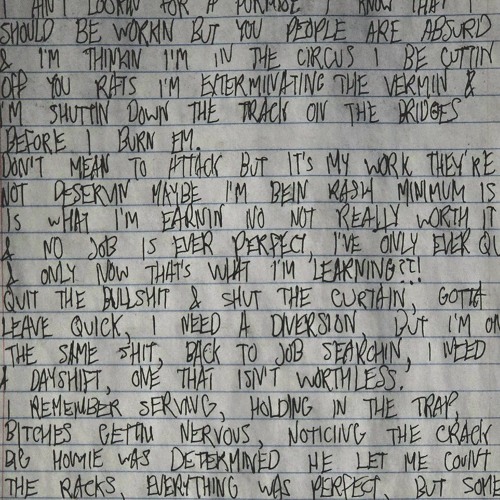 AIN'T LOOKIN FOR A PURPOSE I KNOW THAT I
SHOULD BE WORKIN BUT YOU PEOPLE ARE ABSURD
& I'M THINKIN I'M IN THE CIRCUS I BE CUTTIN
OFF YOU RATS I'M EXTERMINATING THE VERMIN &
I'M SHUTTIN DOWN THE TRACK ON THE BRIDGES
BEFORE I BURN EM.
DON'T MEAN TO ATTACK BUT IT'S MY WORK THEY'RE
NOT DESERVIN MAYBE I'M BEIN RASH MINIMUM IS
IS WHAT I'M EARNIN NO NOT REALLY WORTH IT
& NO JOB IS EVER PERFECT, I'VE ONLY EVER QU
& ONLY NOW THAT'S WHAT I'M LEARNING??!
QUIT THE BULLSHIT & SHUT THE CURTAIN, GOTTA
LEAVE QUICK, I NEED A DIVERSION, BUT I'M ON
THE SAME SHIT, BACK TO JOB SEARCHIN, I NEED
A DAYSHIFT, ONE THAT ISN'T WORTHLESS.
I REMEMBER SERVING, HOLDING IN THE TRAP,
BITCHES GETTIN NERVOUS, NOTICING THE CRACK
BIG HOMIE WAS DETERMINED HE LET ME COUNT
THE RACKS, EVERYTHING WAS PERFECT, BUT SOME